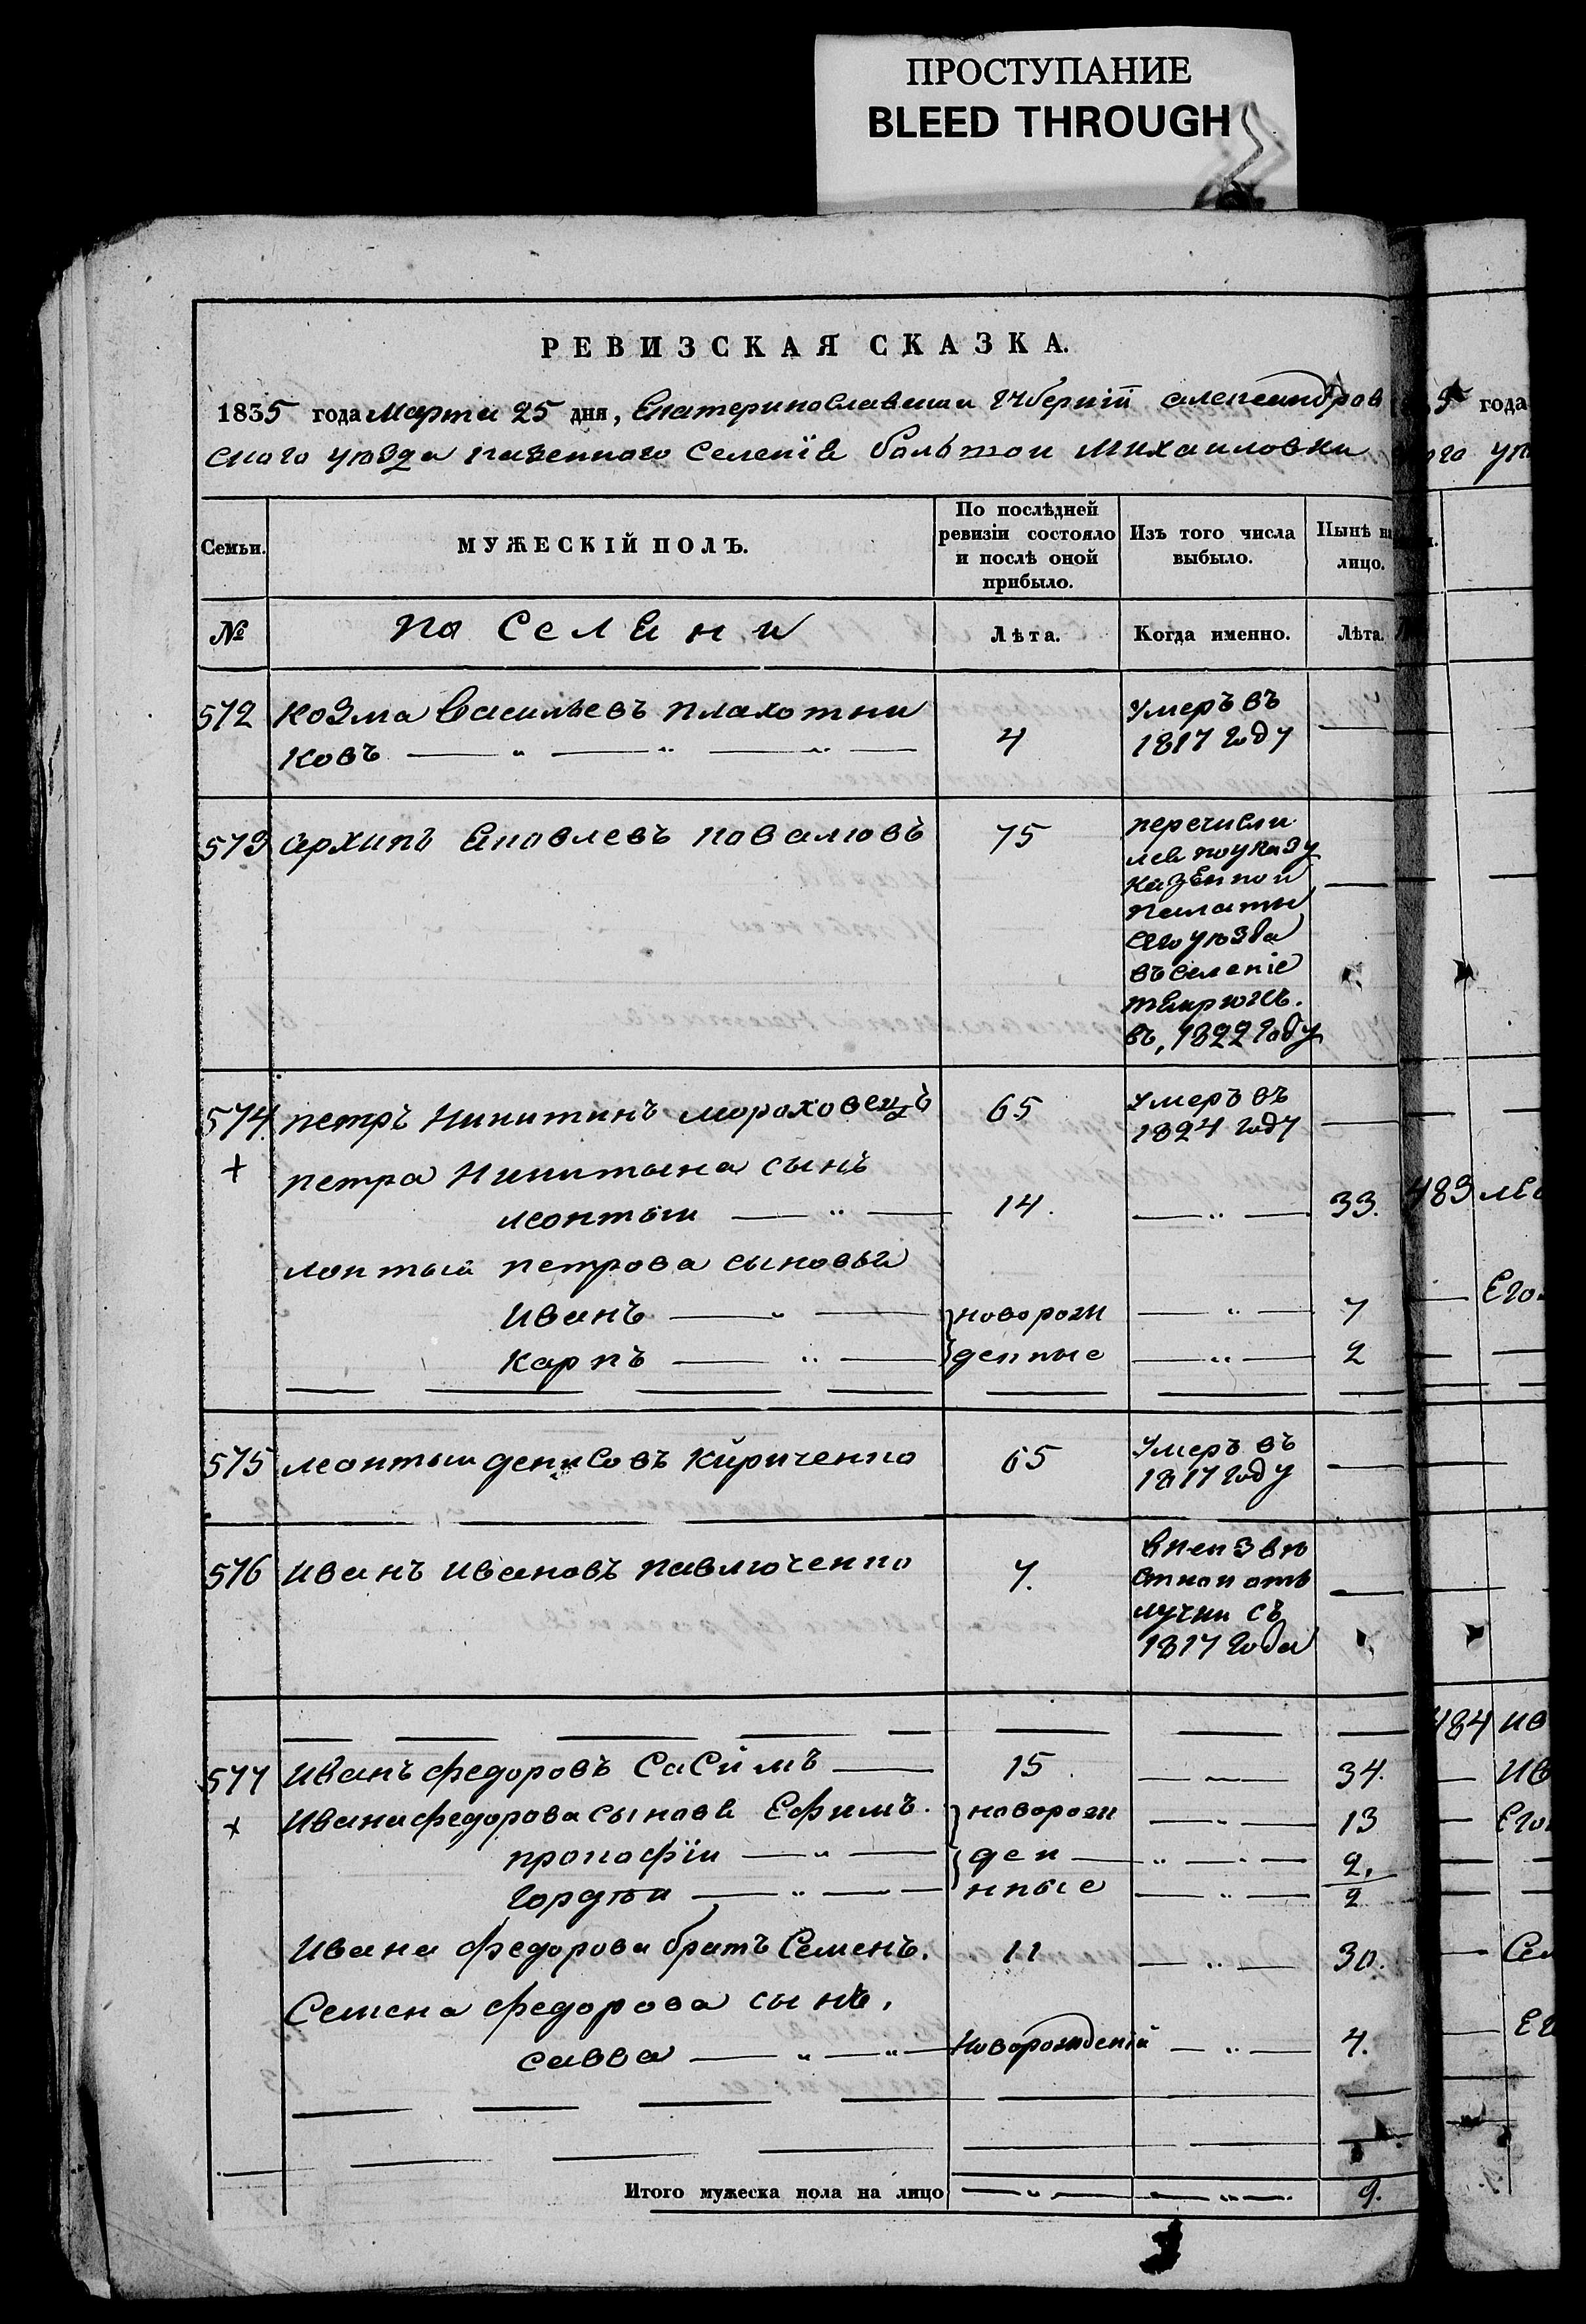 ПРОСТУПАНИЕ
BLEED THROUGH
РЕВИЗСКАЯ СКАЗКА.
1835 года Марта 25 дня, Екатеринославской Губерніи александров
ского уѣзда казенного Селенія большой Михаиловки
Семьи.
МУЖЕСКІЙ ПОЛЪ.
По послѣдней ревизіи состояло и послѣ оной прибыло.
Изъ того числа выбыло.
Нынѣ на лицо.
№
Лѣта.
Когда именно.
Лѣта.
572 Козма Васильевъ Плахотни
ковъ 4 умеръ въ 1817 году
573 архипъ Яковлевъ коваловъ 75 перечисли
лся по указу
казенной
палаты
сего уѣзда
въ селеніе
темрюкъ.
въ, 1822 году
574. петръ Никитинъ мороховецъ 65 умеръ въ 1824 году
+ петра Никитина сынъ
леонтий 14. 33.
лонтия петрова сыновья
Иванъ новорож 7
Карпъ денные 2
575 леонтий денисовъ Кириченко 65 умеръ въ 1817 году
576 Иванъ Ивановъ павлюченко 7. в неизвѣ
стной отъ
лучки съ
1817 года
577 Иванъ федоровъ 15 34.
+ Ивана федорова сыновя Ефимъ. новорож 13
прокофій ден 2.
Гордѣй нные 2
Ивана федорова братъ Семенъ. 11 30.
Семена федорова сынъ,
савва Новорожденій 4.
Итого мужеска пола на лицо 9.
5 года
ого уѣ
483
Его
484 ив
ив
Его
Сем